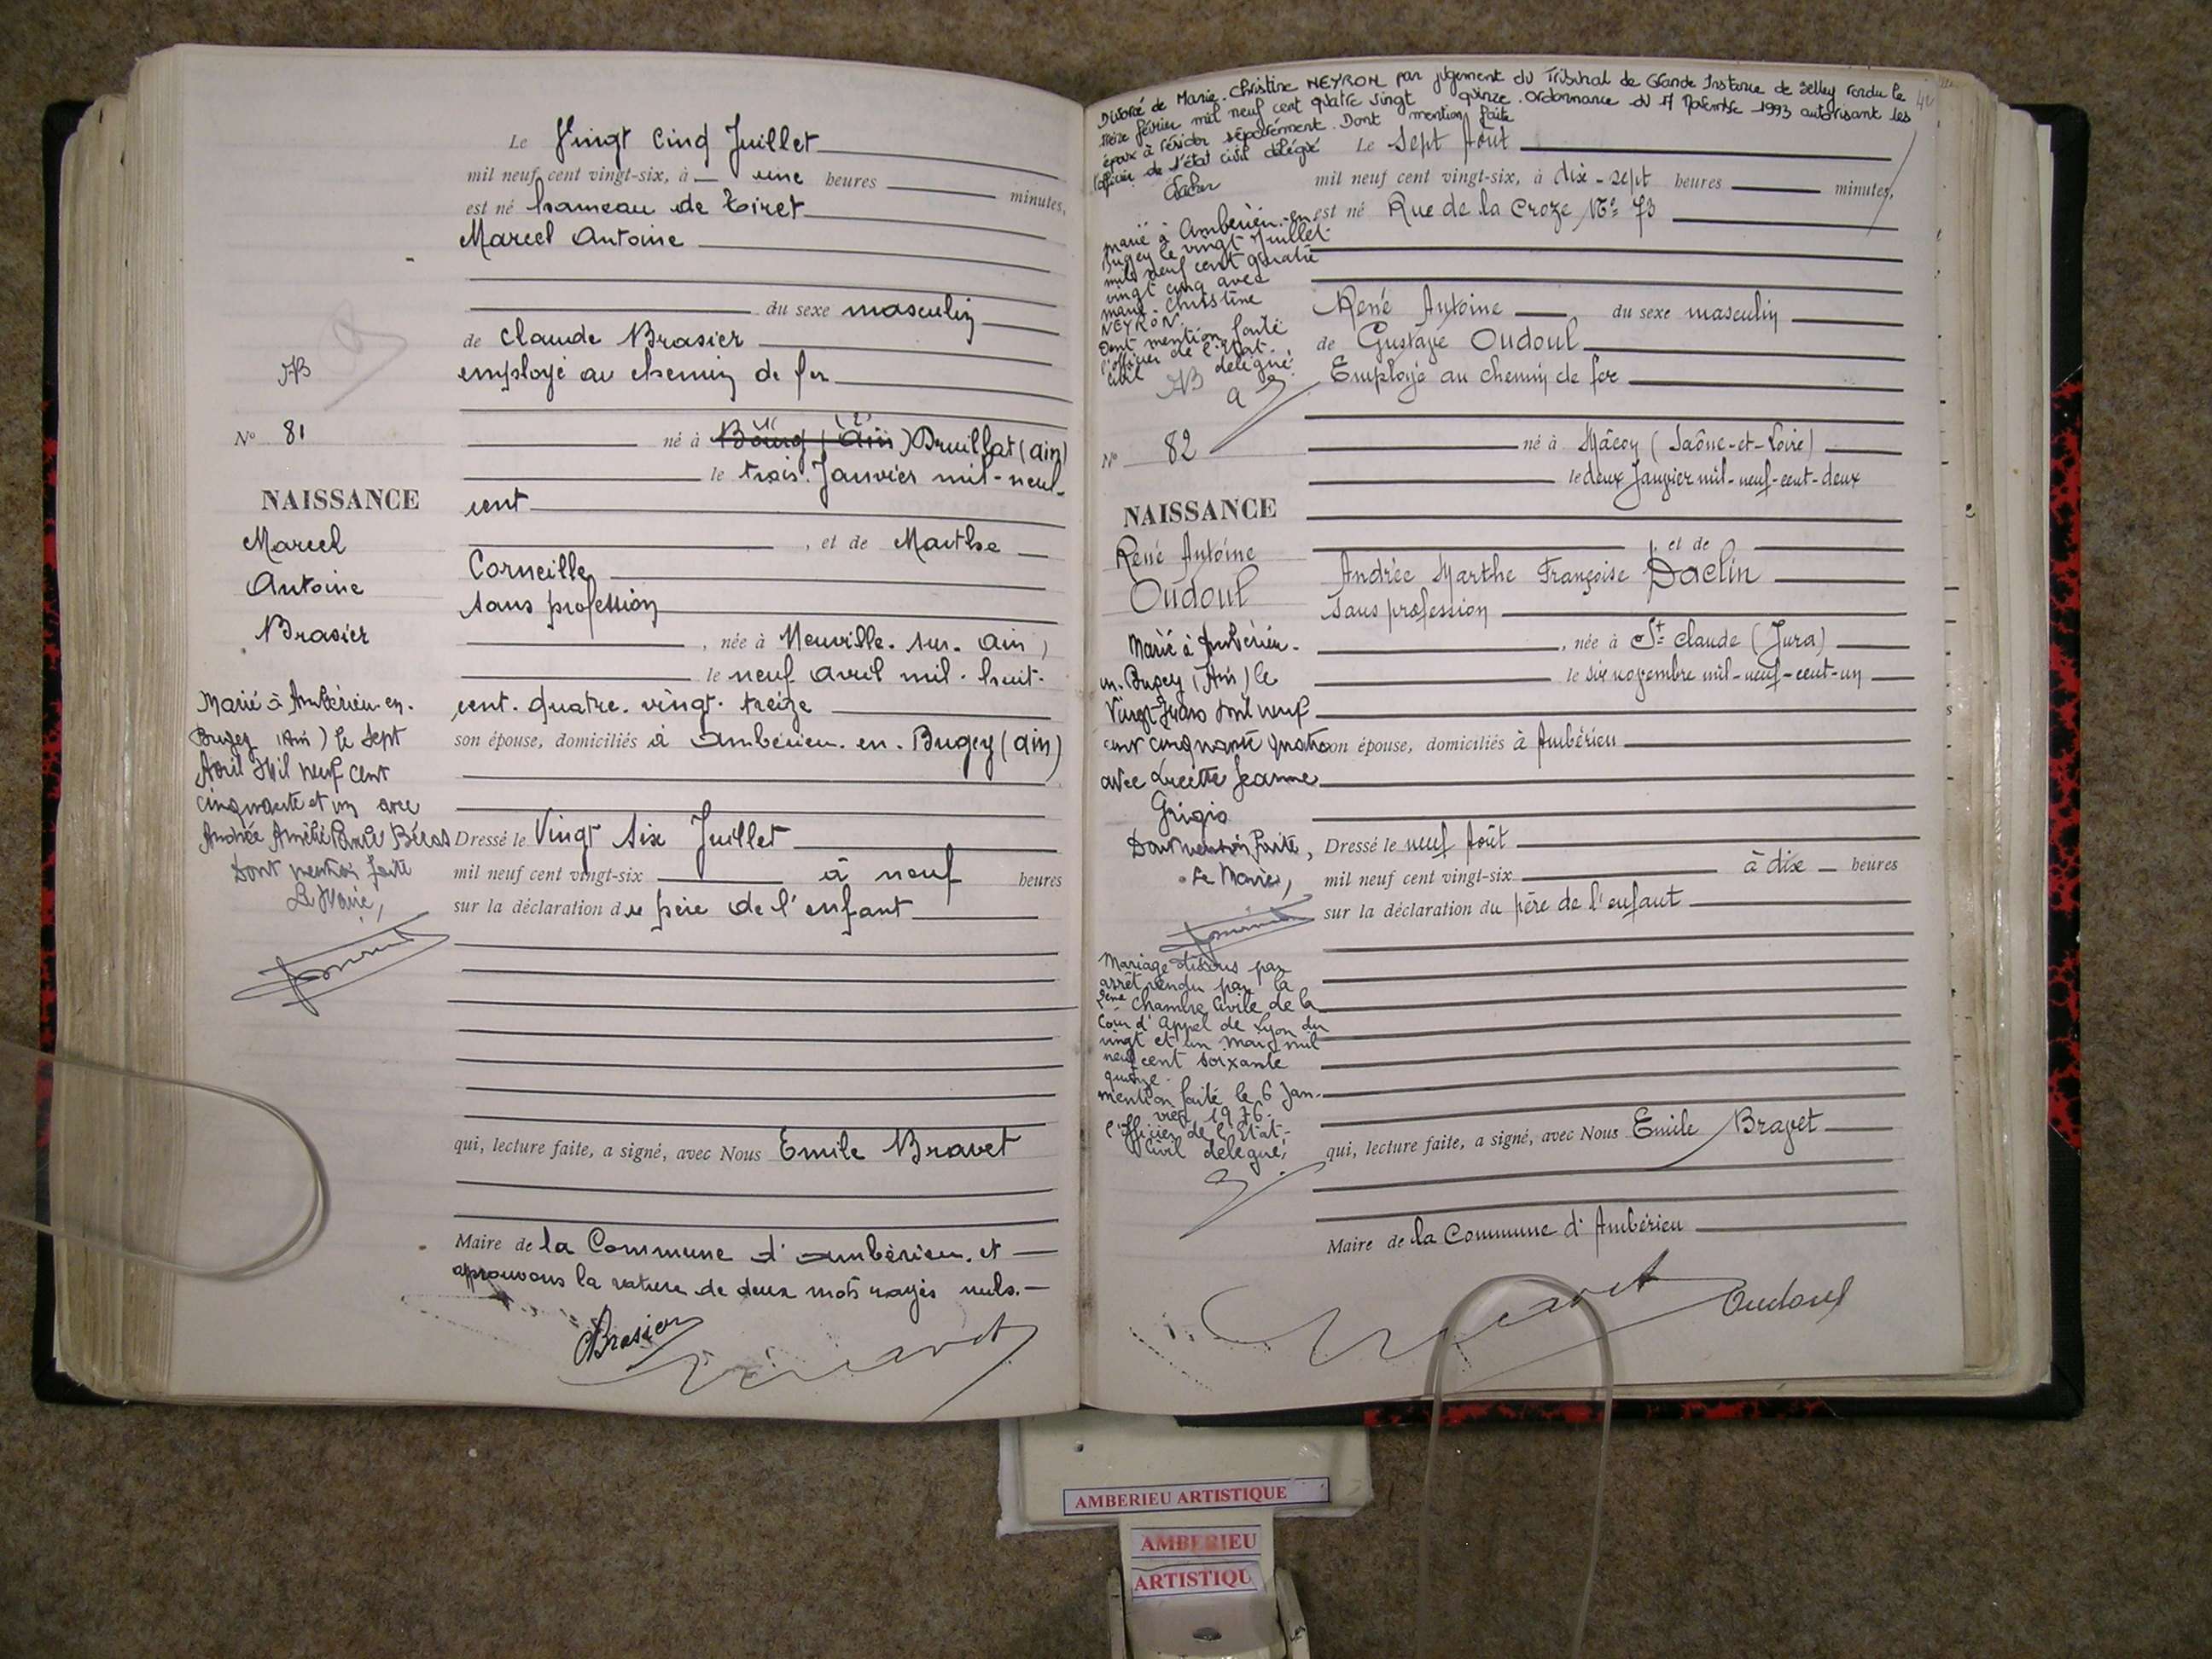 Le Vingt Cinq Juillet
mil neuf cent vingt-six, à une heures minutes,
est né hameau de Tiret
Marcel Antoine
du sexe masculin
de Claude Brasier
employé au chemin de fer
né à Bourg (Ain) Druillat (ain)
le trois Janvier mil-neuf-
cent
, et de Marthe
Corneille
sans profession
, née à Neuville-sur-ain,
le neuf avril mil-huit-
cent-quatre-vingt-treize
son épouse, domiciliés à Ambérieu-en-Bugey (ain)
Dressé le Vingt Six Juillet
mil neuf cent vingt-six à neuf heures
sur la déclaration du père de l'enfant
qui, lecture faite, a signé, avec Nous Emile Bravet
Maire de la Commune d'Ambérieu. et
aprouvons la rature de deux mots rayés nuls.
CBrasier
Bravet
AB
N° 81
NAISSANCE
Marcel
Antoine
Brasier
Marié à Ambérieu-en-
Bugey (Ain) le Sept
Avril Mil neuf cent
cinquante et un avec
Andrée Amélie
Dont mention faite
Le Maire,
Divorcé de Marie-Christine NEYRON par jugement du Tribunal de Grande Instance de Belley rendu le
treize février mil neuf cent quatre vingt quinze. Ordonnance du 17 Novembre 1993 autorisant les
époux à résider séparément. Dont mention faite
l'officier de l'état civil délégué
marié à Ambérieu-en-
Bugey le vingt Juillet
mil neuf cent quatre
vingt cinq avec
marie-Christine
NEYRON.
Dont mention faite
l'officier de l'Etat-
civil délégué.
AB
N° 82
NAISSANCE
René Antoine
Oudoul
Marié à Ambérieu-
en-Bugey (Ain) le
Vingt Mars mil neuf
cent cinquante quatre
avec Lucette Jeanne
Grigio
Dont mention faite,
Le Maire,
Mariage dissous par
arrêt rendu par la
2ème Chambre Civile de la
Cour d'Appel de Lyon du
vingt et un mai mil
neuf cent soixante
quinze.
mention faite le 6 Jan-
vier 1976.
l'officier de l'Etat-
Civil délégué,
Le Sept Août
mil neuf cent vingt-six, à dix-sept heures minutes,
est né Rue de la Croze, N° 73
René Antoine du sexe masculin
de Gustave Oudoul
Employé au chemin de fer
né à Mâcon (Saône-et-Loire)
le deux Janvier mil-neuf-cent-deux
, et de
Andrée Marthe Françoise Daclin
sans profession
, née à St Claude (Jura)
le six novembre mil-neuf-cent-un
son épouse, domiciliés à Ambérieu
Dressé le neuf Août
mil neuf cent vingt-six à dix heures
sur la déclaration du père de l'enfant
qui, lecture faite, a signé, avec Nous Emile Bravet
Maire de la Commune d'Ambérieu
Bravet Oudoul
AMBERIEU ARTISTIQUE
AMBERIEU
ARTISTIQU